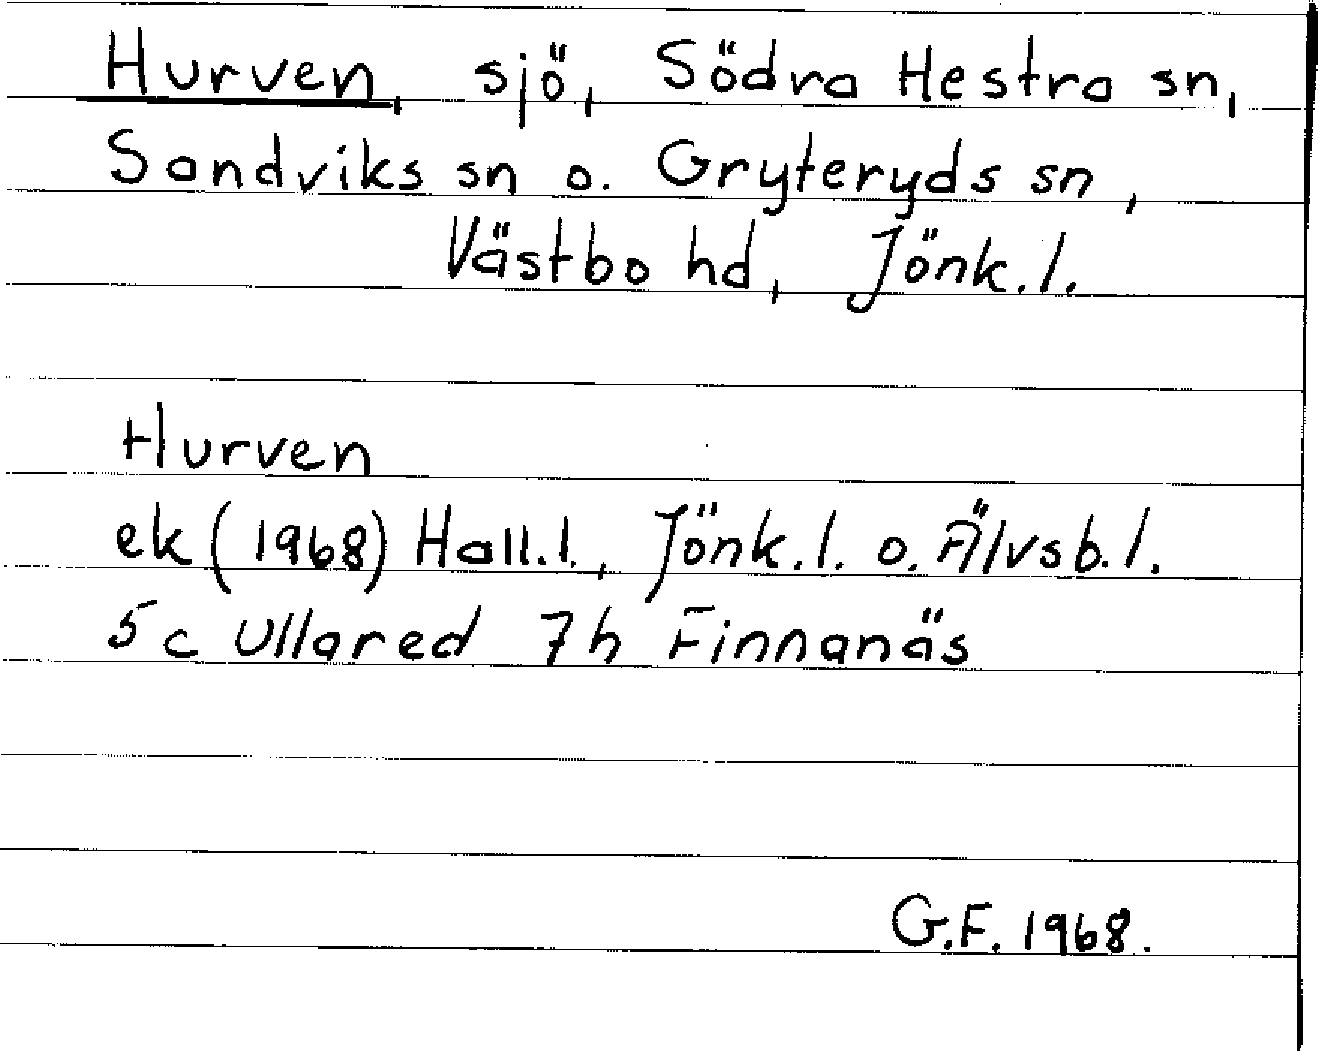 Hurven, sjö, Södra Hestra sn,
Sandviks sn o. Gryteryds sn,
Västbo hd, Jönk.l.
Hurven
ek (1968) Hall.l., Jönk.l. o. Älvsb.l.
5c Ullared 7h Finnanäs
G.F. 1968.